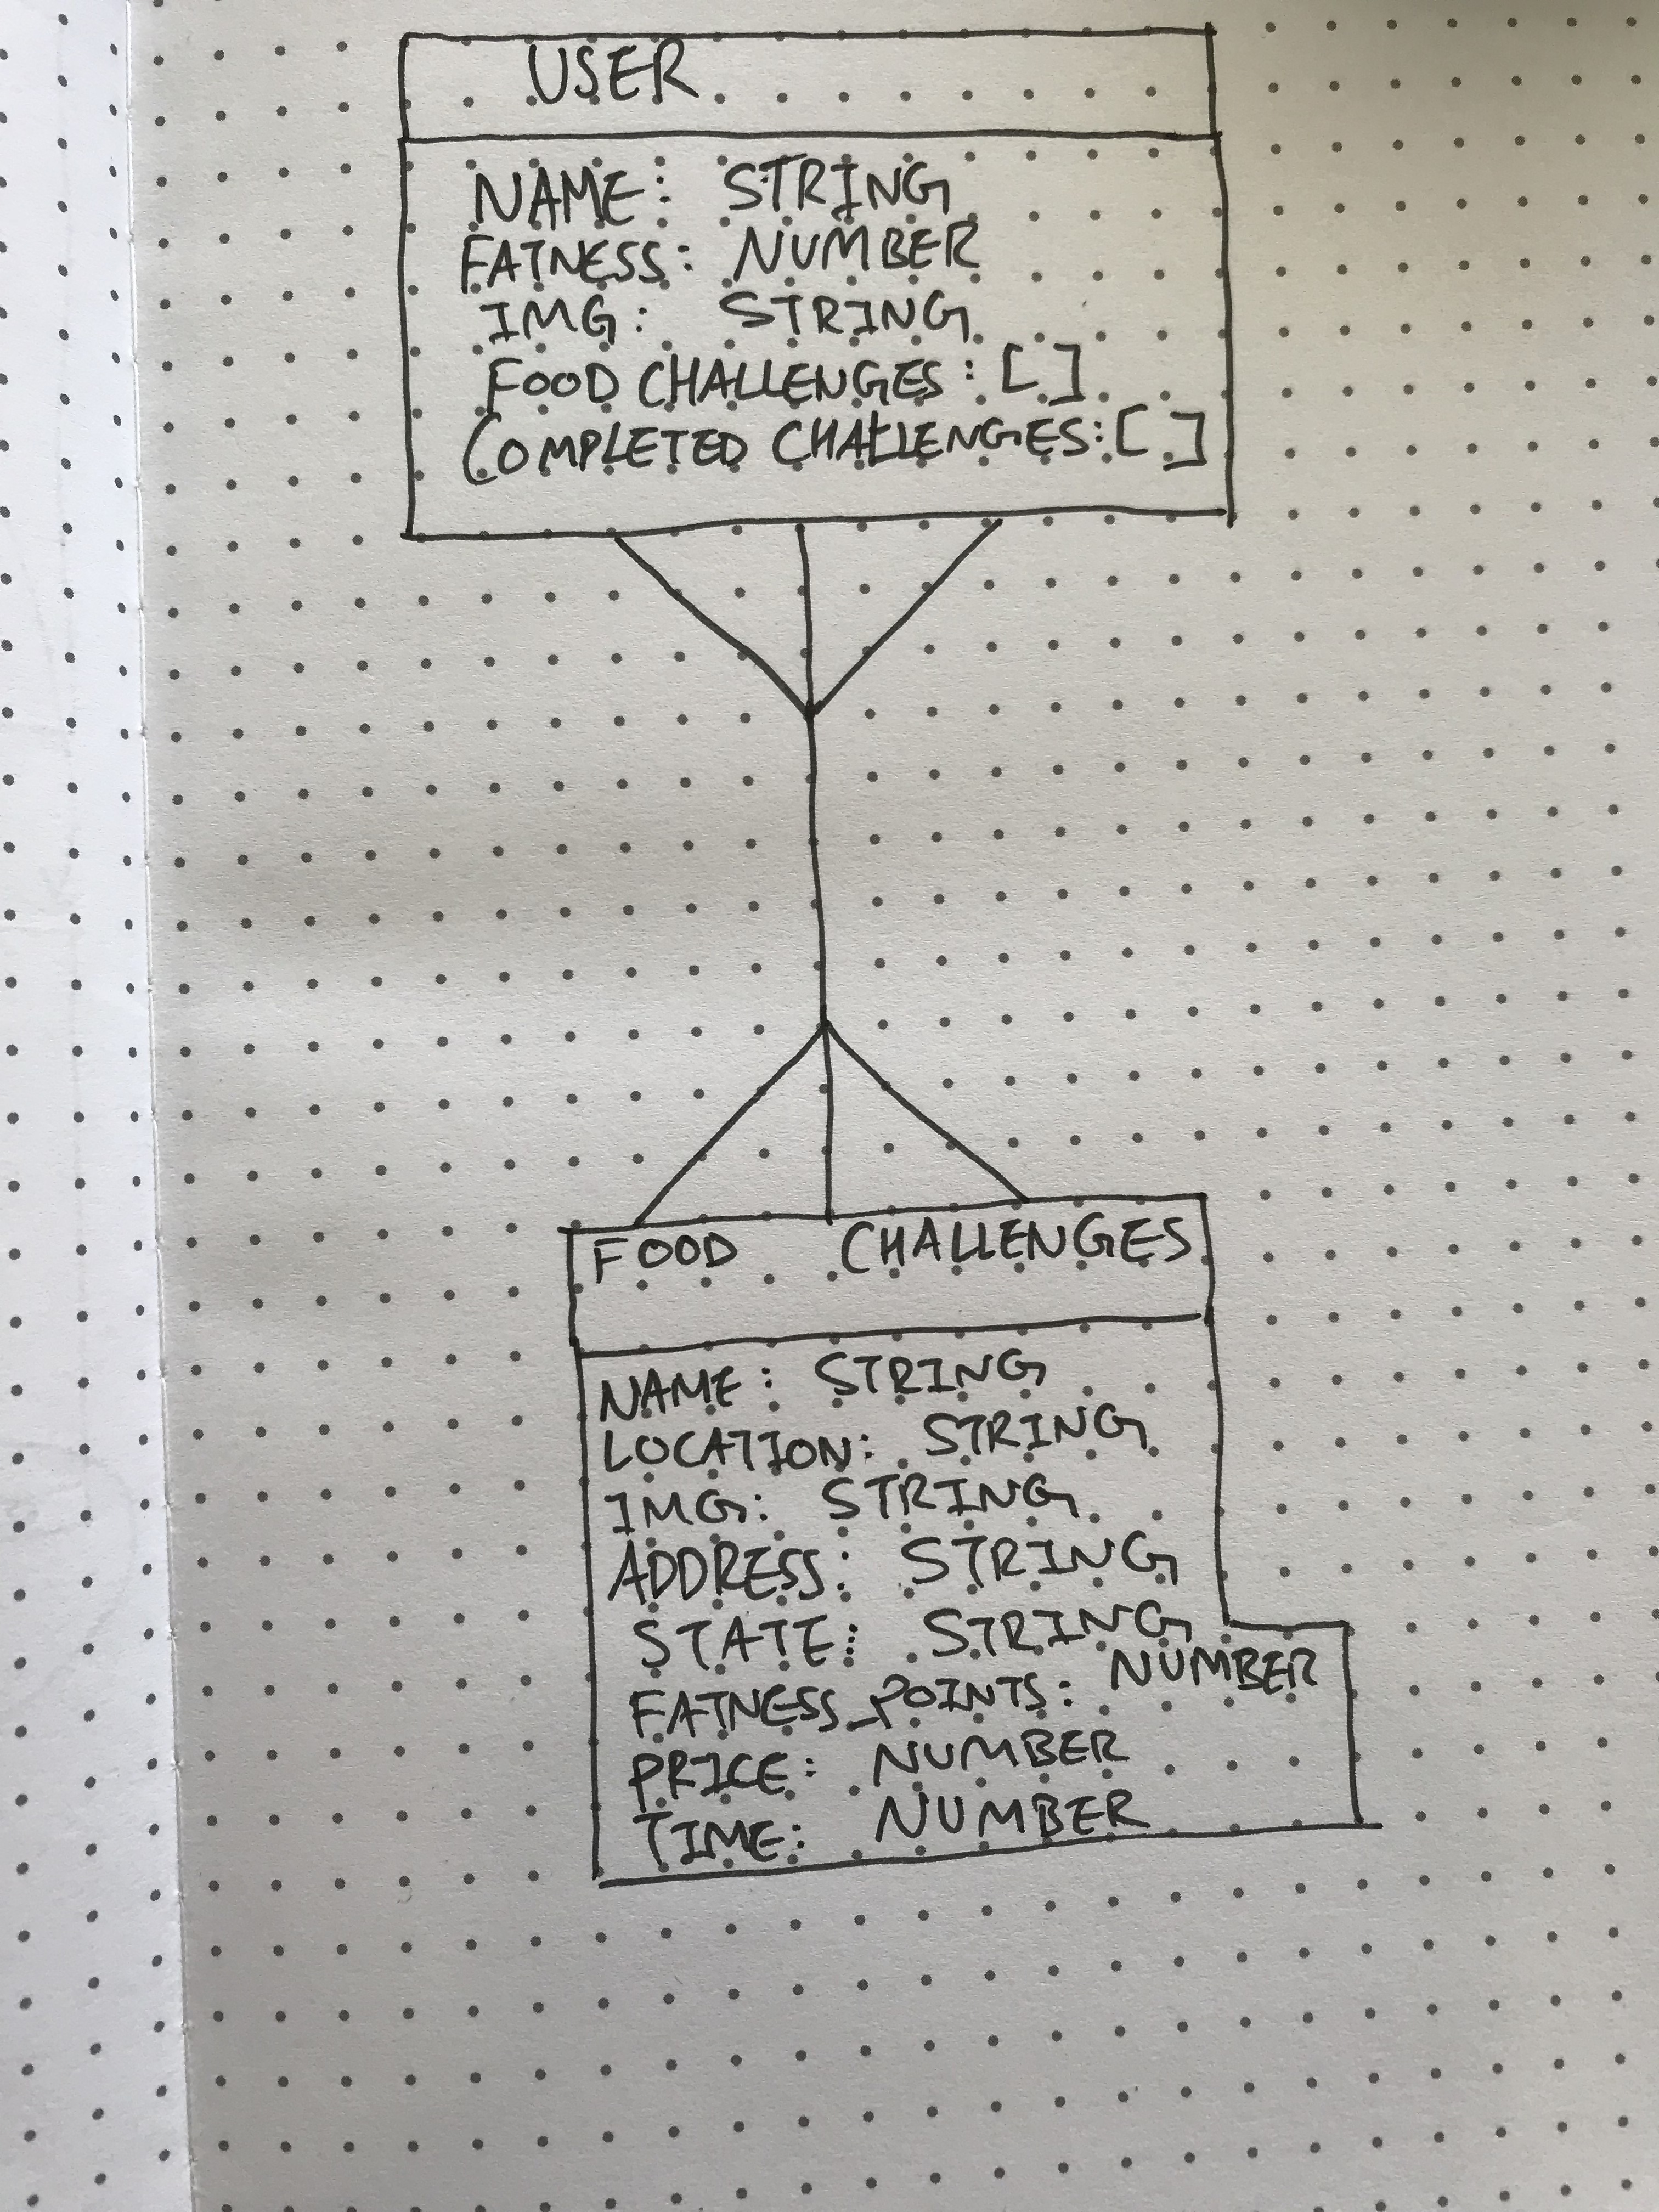 USER
NAME: STRING
FATNESS: NUMBER
IMG: STRING
FOOD CHALLENGES: [ ]
COMPLETED CHALLENGES: [ ]
FOOD CHALLENGES
NAME: STRING
LOCATION: STRING
IMG: STRING
ADDRESS: STRING
STATE: STRING
FATNESS_POINTS: NUMBER
PRICE: NUMBER
TIME: NUMBER